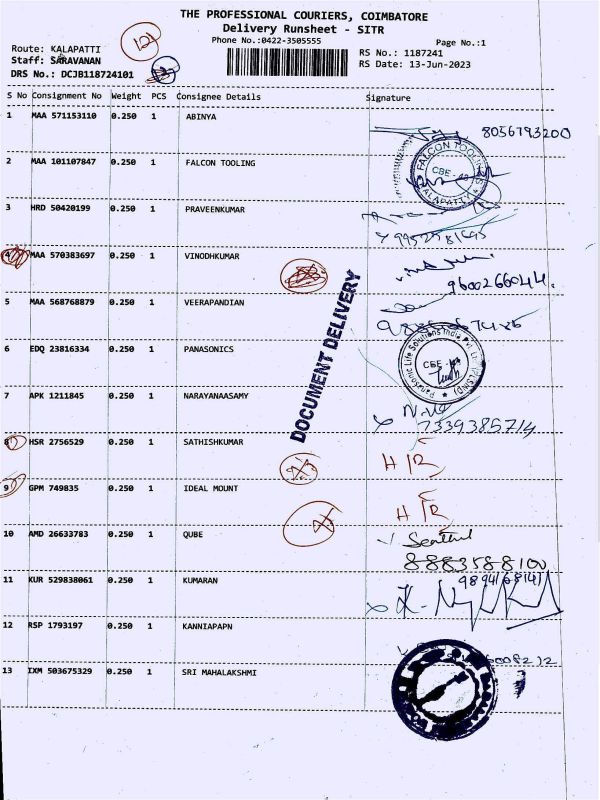 THE PROFESSIONAL COURIERS, COIMBATORE
Delivery Runsheet - SITR
Phone No.:0422-3505555
Page No.:1
Route: KALAPATTI
Staff: SARAVANAN
DRS No.: DCJB118724101
RS No.: 1187241
RS Date: 13-Jun-2023
S No Consignment No Weight PCS Consignee Details Signature
1 MAA 571153110 0.250 1 ABINYA
8056793200
2 MAA 101107847 0.250 1 FALCON TOOLING
FALCON TOOLINGS
CBE - 48
KALAPATTI
3 HRD 50420199 0.250 1 PRAVEENKUMAR
4 MAA 570383697 0.250 1 VINODHKUMAR
9600266044.
5 MAA 568768879 0.250 1 VEERAPANDIAN
DOCUMENT DELIVERY
6 EDQ 23816334 0.250 1 PANASONICS
Panasonic Life Solutions India Pvt. Ltd.
CBE
7 APK 1211845 0.250 1 NARAYANAASAMY
7339385714
8 HSR 2756529 0.250 1 SATHISHKUMAR
H/R
9 GPM 749835 0.250 1 IDEAL MOUNT
H/R
10 AMD 26633783 0.250 1 QUBE
Senthil
8883588100
11 KUR 529838061 0.250 1 KUMARAN
9894168141
12 RSP 1793197 0.250 1 KANNIAPAPN
13 IXM 503675329 0.250 1 SRI MAHALAKSHMI